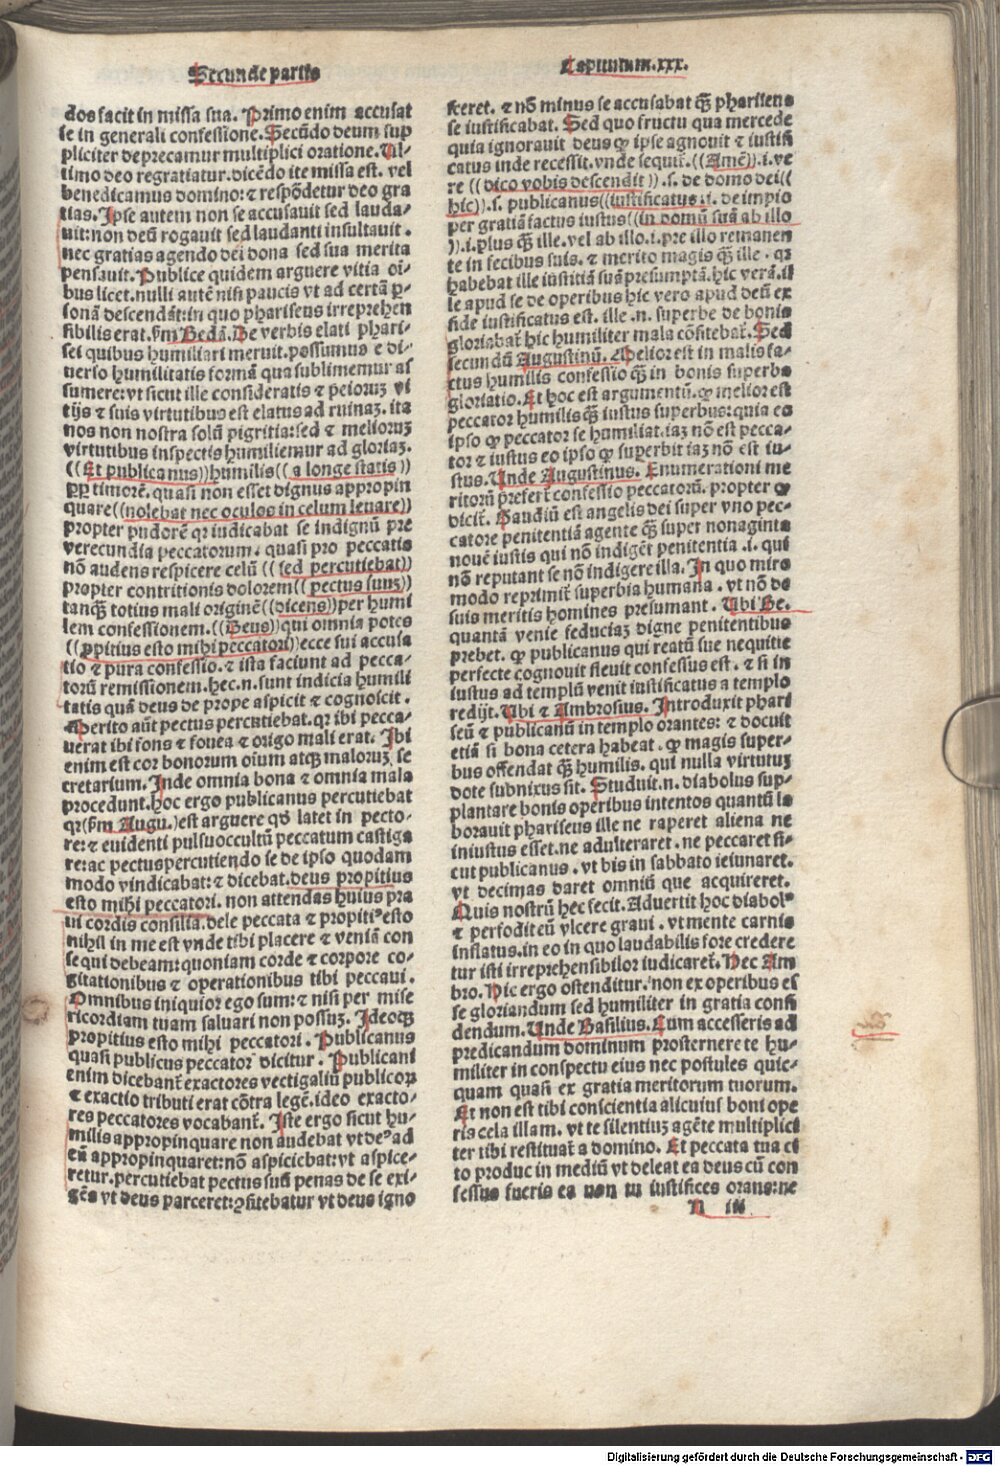 Secunde partis
Capitulum.xxx.
dos facit in missa sua. Primo enim accusat
se in generali confessione. Secūdo deum sup
pliciter deprecamur multiplici oratione. Ul-
timo deo regratiatur. dicēdo ite missa est. vel
benedicamus domino: ⁊ respōdetur deo gra
tias. Ipse autem non se accusauit sed lauda-
uit: non deū rogauit sed laudanti insultauit.
nec gratias agendo dei dona sed sua merita
pensauit. Publice quidem arguere vitia oī-
bus licet. nulli autē nisi paucis vt ad certā ꝑ-
sonā descendāt: in quo phariseus irreprehen
sibilis erat. s̄m Bedā. De verbis elati phari-
sei quibus humiliari meruit. possumus e di-
uerso humilitatis formā qua sublimemur as
sumere: vt sicut ille consideratis ⁊ peioruꝫ vi
tijs ⁊ suis virtutibus est elatus ad ruinaꝫ. ita
nos non nostra solū pigritia: sed ⁊ melioruꝫ
virtutibus inspectis humiliemur ad gloriaꝫ.
((Et publicanus)) humilis ((a longe stans))
ꝓpꝑ timorē. quasi non esset dignus appropin
quare ((nolebat nec oculos in celum leuare))
propter pudorē qꝛ iudicabat se indignū pre
verecundia peccatorum. quasi pro peccatis
nō audens respicere celū ((sed percutiebat))
propter contritionis dolorem ((pectus suuꝫ))
tanqꝫ totius mali originē ((dicens)) per humi
lem confessionem. ((Deus)) qui omnia potes
((ꝓpitius esto mihi peccatori)) ecce sui accusa
tio ⁊ pura confessio. ⁊ ista faciunt ad pecca-
torū remissionem. hec. n. sunt indicia humili
tatis quā deus de prope aspicit ⁊ cognoscit.
Merito aūt pectus percutiebat. qꝛ ibi pecca-
uerat ibi fons ⁊ fouea ⁊ origo mali erat. Ibi
enim est cor bonorum oīum atqꝫ maloruꝫ se
cretarium. Inde omnia bona ⁊ omnia mala
procedunt. hoc ergo publicanus percutiebat
qꝛ (s̄m Augu.) est arguere qd̄ latet in pecto-
re: ⁊ euidenti pulsu occultū peccatum castiga
re: ac pectus percutiendo se de ipso quodam
modo vindicabat: ⁊ dicebat. deus propitius
esto mihi peccatori. non attendas huius pra
ui cordis consilia. dele peccata ⁊ propitiꝰ esto
nihil in me est vnde tibi placere ⁊ veniā con
sequi debeam: quoniam corde ⁊ corpore co-
gitationibus ⁊ operationibus tibi peccaui.
Omnibus iniquior ego sum: ⁊ nisi per mise
ricordiam tuam saluari non possuꝫ. Ideoqꝫ
propitius esto mihi peccatori. Publicanus
quasi publicus peccator dicitur. Publicani
enim dicebant̄ exactores vectigaliū publicoꝝ
⁊ exactio tributi erat cōtra legē. ideo exacto-
res peccatores vocabant̄. Iste ergo sicut hu-
milis appropinquare non audebat vt deꝰ ad
eū appropinquaret: nō aspiciebat: vt aspice-
retur. percutiebat pectus suū penas de se exi-
gēs vt deus parceret: ꝯfitebatur vt deus igno
sceret. ⁊ nō minus se accusabat qꝫ̄ phariseus
se iustificabat. Sed quo fructu qua mercede
quia ignorauit deus qꝙ ipse agnouit ⁊ iustifi
catus inde recessit. vnde sequit̄. ((Amē)). i. ve
re ((dico vobis descendit)). s. de domo dei ((
hic)). s. publicanus ((iustificatus. i. de impio
per gratiā factus iustus ((in domū suā ab illo
)). i. plus qꝫ̄ ille. vel ab illo. i. pre illo remanen
te in fecibus suis. ⁊ merito magis qꝫ̄ ille. qꝛ
habebat ille iustitiā suā presumptā. hic verā. il
le apud se de operibus hic vero apud deū ex
fide iustificatus est. ille. n. superbe de bonis
gloriabat̄ hic humiliter mala cōfitebat̄. Sed
secundū Augustinū. Melior est in malis fa-
ctus humilis confessio qꝫ̄ in bonis superba
gloriatio. Et hoc est argumentū. ꝙ melior est
peccator humilis qꝫ̄ iustus superbus: quia eo
ipso ꝙ peccator se humiliat. iaꝫ nō est pecca-
tor ⁊ iustus eo ipso ꝙ superbit iaꝫ nō est iu-
stus. Unde Augustinus. Enumerationi me
ritorū prefert̄ confessio peccatorū. propter ꝙ
dicit̄. Gaudiū est angelis dei super vno pec-
catore penitentiā agente qꝫ̄ super nonaginta
nouē iustis qui nō indigēt penitentia. i. qui
nō reputant se nō indigere illa. In quo miro
modo reprimit̄ superbia humana. vt nō de
suis meritis homines presumant. Ubi Be.
quantā venie feduciaꝫ digne penitentibus
prebet. ꝙ publicanus qui reatū sue nequitie
perfecte cognouit fleuit confessus est. ⁊ si in
iustus ad templū venit iustificatus a templo
redijt. Ubi ⁊ Ambrosius. Introduxit phari
seū ⁊ publicanū in templo orantes: ⁊ docuit
etiā si bona cetera habeat. ꝙ magis super-
bus offendat qꝫ̄ humilis. qui nulla virtutuꝫ
dote subnixus sit. Studuit. n. diabolus sup-
plantare bonis operibus intentos quantū la
borauit phariseus ille ne raperet aliena ne
iniustus esset. ne adulteraret. ne peccaret si-
cut publicanus. vt bis in sabbato ieiunaret.
vt decimas daret omniū que acquireret.
Quis nostrū hec fecit. Aduertit hoc diabolꝰ
⁊ perfodit eū vlcere graui. vt mente carnis
inflatus. in eo in quo laudabilis fore credere
tur isti irreprehensibilor iudicaret̄. Hec Am
bro. Hic ergo ostenditur. non ex operibus es
se gloriandum sed humiliter in gratia confi
dendum. Unde Basilius. Cum accesseris ad
predicandum dominum prosternere te hu-
militer in conspectu eius nec postules quic-
quam quasi ex gratia meritorum tuorum.
Et non est tibi conscientia alicuius boni ope
ris cela illam. vt te silentiuꝫ agēte multiplici
ter tibi restituat̄ a domino. Et peccata tua ci
to produc in mediū vt deleat ea deus cū con
fessus fueris ea non tu iustifices orans: ne
N iii
Digitalisierung gefördert durch die Deutsche Forschungsgemeinschaft - DFG